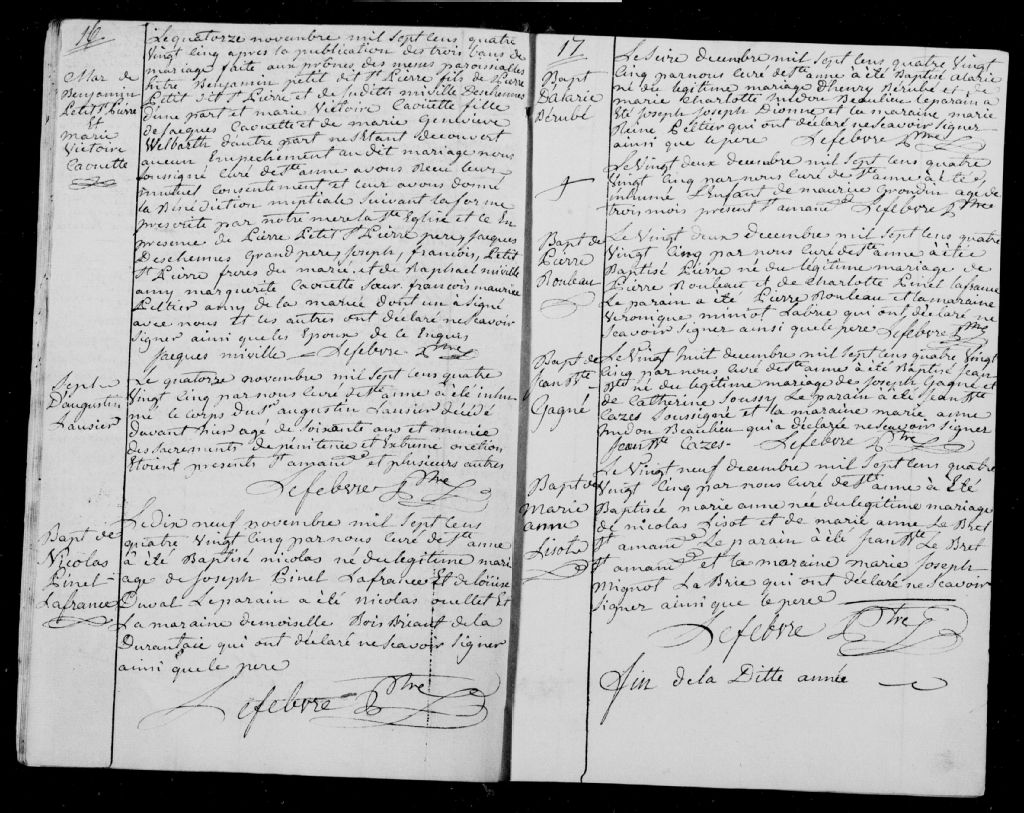 16.
Mar de
Benjamin
Petit St Pierre
Et
marie
Victoire
Caouette
Le quatorze novembre mil Sept Cens quatre
Vingt Cinq apres la publication des trois bans de
mariage faite aux prônes des messes paroissialles
Entre Benjamin petit dit St Pierre fils de Pierre
Petit dit St Pierre et de Judith miville Deschennes
d'une part et marie Victoire Caouette fille
de Jacques Caouette et de marie Genevieve
Welbarth d'autre part ne S'Etant decouvert
aucun Empechement au dit mariage nous
Soussigné Curé de Ste anne avons Recu leurs
mutuel Consentement et leur avons donné
la Bénédiction nuptiale Suivant la forme
prescrite par notre mere la Ste Eglise et ce En
presence de Pierre Petit St Pierre pere, Jacques
Deschennes Grand pere, Joseph, francois, Petit
St Pierre freres du marié, et de Raphael miville
amy marguerite Caouette Sœur francois maurice
Peltier amy de la mariée dont un à Signé
avec nous Et les autres ont déclaré ne Scavoir
Signer ainsi que les Epoux de ce Enquis
Jacques miville — Lefebvre Ptre
Sept
D'augustin
Lausier
Le quatorze novembre mil Sept Cens quatre
Vingt Cinq par nous Curé de Ste anne à été inhu-
mé le Corps du Sr augustin Lausier décédé
d'avant hier agé de Soixante ans et munie
des Sacrements de pénitence et Extreme onction
Etoient presents St amand et plusieurs autres
Lefebvre Ptre
Bapt de
Nicolas
Pinel-
Lafrance
Le Dix neuf novembre mil Sept Cens
quatre Vingt Cinq par nous Curé de Ste anne
à été Baptisé nicolas né du legitime mari
age de Joseph Pinel Lafrance Et de loüise
Duval Le parain à été nicolas ouellet Et
La maraine demoiselle Bois Briant de la
Durantaie qui ont déclaré ne Scavoir Signer
ainsi que le pere
Lefebvre Ptre
17.
Bapt
D'alarie
Bérubé
Le Seize decembre mil Sept Cens quatre Vingt
Cinq par nous Curé de Ste anne à été Baptisé alarie
né du légitime mariage d'henry Bérubé et de
marie Charlotte miдon Beaulieu le parain à
Eté Joseph Joseph Dionne et la maraine marie
Reine Peltier qui ont déclaré ne Scavoir Signer
ainsi que le pere Lefebvre Ptre
Le Vingt deux decembre mil Sept Cens quatre
Vingt Cinq par nous Curé de Ste anne à été
inhumé L'Enfant de maurice Grondin agé de
trois mois présent St amand Lefebvre Ptre
Bapt de
Pierre
Rouleau
Le Vingt deux decembre mil Sept Cens quatre
Vingt Cinq par nous Curé de Ste anne à été
Baptisé Pierre né du légitime mariage de
Pierre Rouleau et de Charlotte Pinel lafrance
Le parain a été Pierre Rouleau et la maraine
Veronique miniot Labrie qui ont déclaré ne
Scavoir Signer ainsi que le pere Lefebvre Ptre
Bapt de
Jean Bte
Gagné
Le Vingt huit decembre mil Sept Cens quatre Vingt
Cinq par nous Curé de Ste anne à été Baptisé Jean
Bte né du légitime mariage de Joseph Gagné et
de Catherine Soussy Le parain à été Jean Bte
Cazes Soussigné et la maraine marie anne
Beaulieu qui a déclaré ne Scavoir Signer
Jean Bte Cazes- Lefebvre Ptre
Bapt de
Marie
anne
Lisote
Le Vingt neuf decembre mil Sept Cens quatre
Vingt Cinq par nous Curé de Ste anne à Eté
Baptisée marie anne née du légitime mariage
de nicolas Lisot et de marie anne Le Bret
St amand Le parain à été Jean Bte Le Bret
St amand et la maraine marie Joseph
Mignot La Brie qui ont déclaré ne Scavoir
Signer ainsi que le pere
Lefebvre Ptre
Fin de la Ditte année